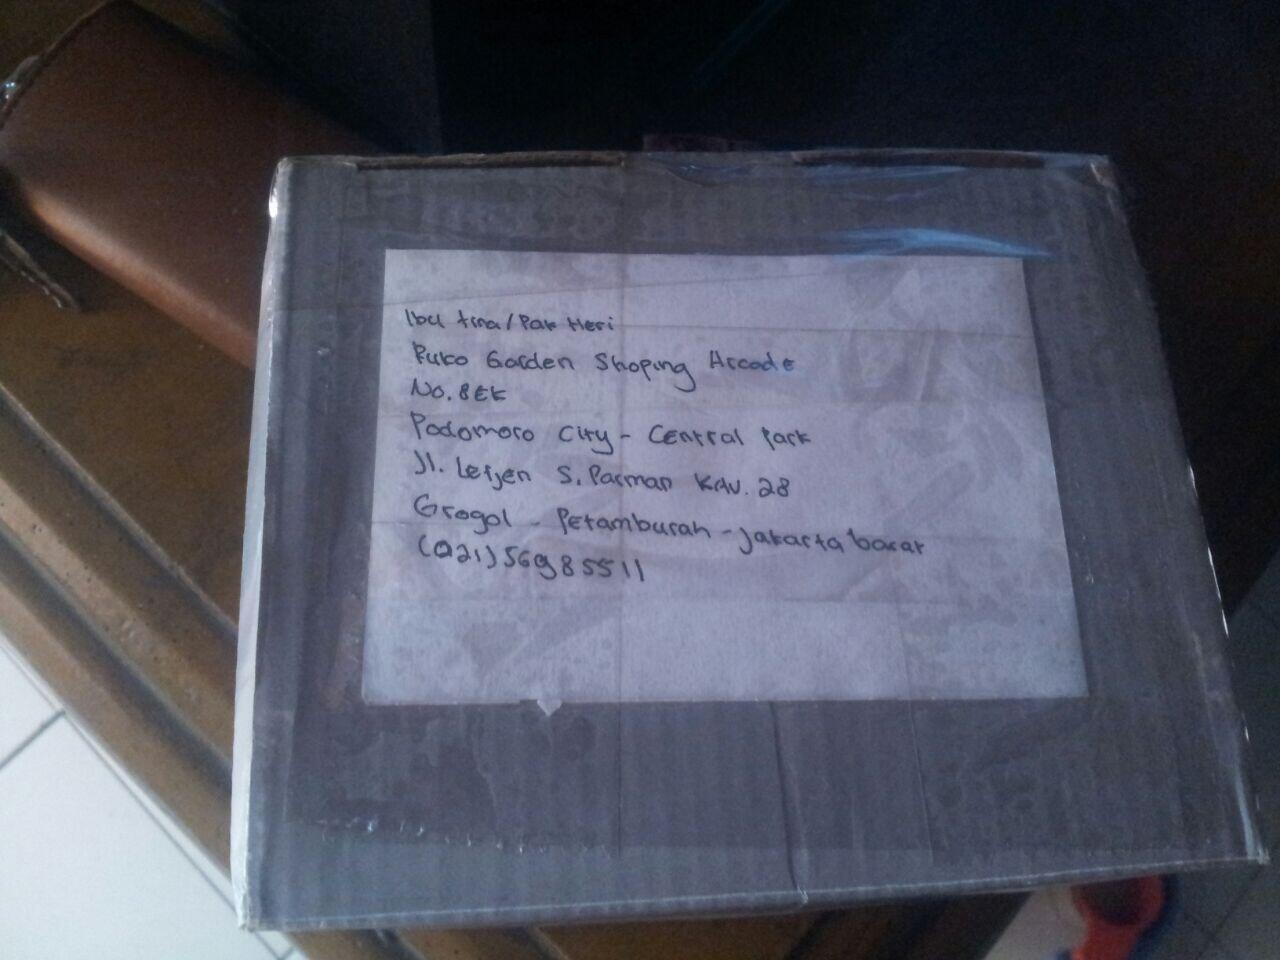 Ibu Tina/Pak Heri
Ruko Garden Shoping Arcade
No. 8EK
Podomoro City - Central Park
Jl. Letjen S. Parman Kav. 28
Grogol - Petamburah - Jakarta barat
(021) 56985511